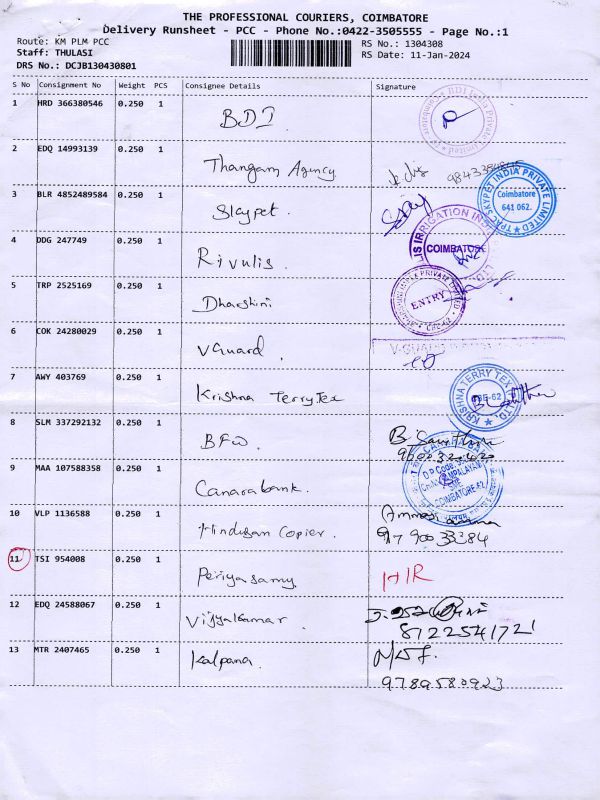 THE PROFESSIONAL COURIERS, COIMBATORE
Delivery Runsheet - PCC - Phone No.:0422-3505555 - Page No.:1
Route: KM PLM PCC
RS No.: 1304308
Staff: THULASI
RS Date: 11-Jan-2024
DRS No.: DCJB130430801
S No Consignment No Weight PCS Consignee Details Signature
1 HRD 366380546 0.250 1 BDI
2 EDQ 14993139 0.250 1 Thangam Agency
3 BLR 4852489584 0.250 1 Skypet.
Coimbatore
641 062.
TPAC SKYPET INDIA PRIVATE LIMITED
4 DDG 247749 0.250 1 Rivulis.
IRRIGATION
COIMBATORE
5 TRP 2525169 0.250 1 Dharshini
PRIVATE LIMITED
ENTRY
6 COK 24280029 0.250 1 VGuard.
7 AWY 403769 0.250 1 Krishna TerryTex
KRISHNA TERRY TEX
8 SLM 337292132 0.250 1 BFW
9 MAA 107588358 0.250 1 Canarabank.
10 VLP 1136588 0.250 1 Hindusan Copier.
97 900 33384
11 TSI 954008 0.250 1 Periyasamy HIR
12 EDQ 24588067 0.250 1 Vijyakumar
8122541721
13 MTR 2407465 0.250 1 Kalpana.
9789580923